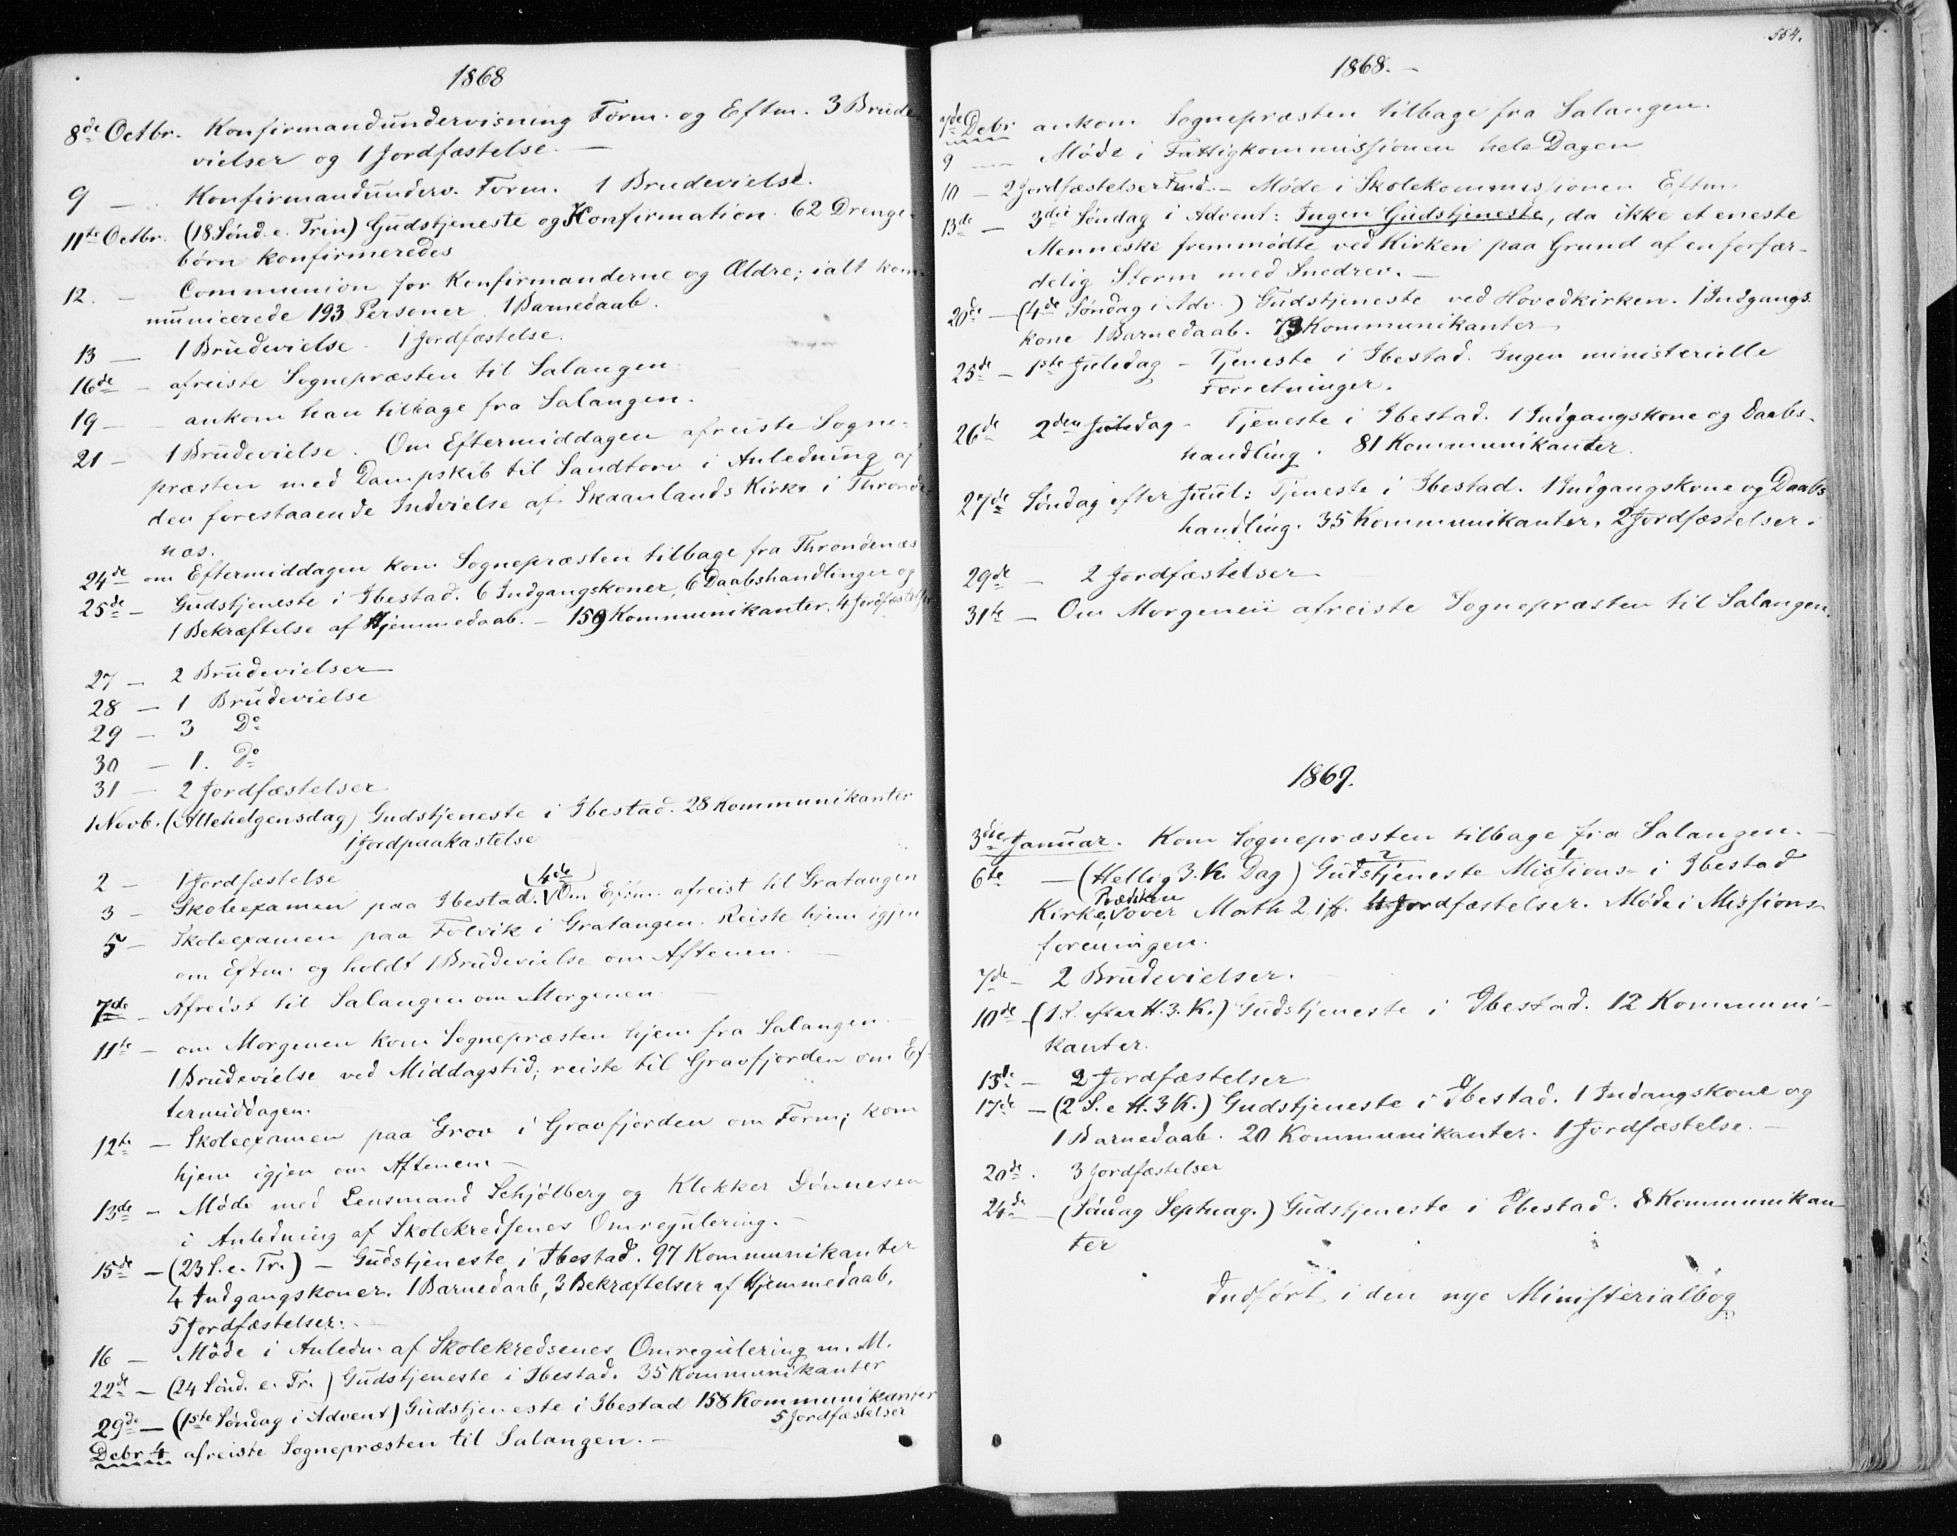 1868
8de Octbr. Konfirmandundervisning Form. og Eftm. 3 Brude-
vielser og 1 Jordfæstelse. —
9 — Konfirmandunderv. Form. 1 Brudevielse.
11te Octbr. (18 Sønd. e. Trin) Gudstjeneste og Konfirmation. 62 Drenge-
børn konfirmeredes
12. — Communion for Konfirmanderne og Ældre; ialt kom-
municerede 193 Personer. 1 Barnedaab.
13 — 1 Brudevielse. 1 Jordfæstelse.
16de — afreiste Sognepræsten til Salangen.
19 — ankom han tilbage fra Salangen.
21 — 1 Brudevielse. Om Eftermiddagen afreiste Sogne-
præsten med Dampskib til Sandtorv i Anledning af
den forestaaende Indvielse af Skaanlands Kirke i Thronde-
næs.
24de om Eftermiddagen kom Sognepræsten tilbage fra Throndenæs
25de — Gudstjeneste i Ibestad. 6 Indgangskoner, 6 Daabshandlinger og
1 Bekræftelse af Hjemmedaab. — 159 Kommunikanter. 4 Jordfæstelser
27 — 2 Brudevielser
28 — 1 Brudevielse
29 — 3 Do
30 — 1. Do
31 — 2 Jordfæstelser
1 Novb. (Allehelgensdag) Gudstjeneste i Ibestad. 28 Kommunikanter
1 Jordpaakastelse
2 — 1 Jordfæstelse
3 — Skoleexamen paa Ibestad. (4de) Om Eftm. afreist til Gratangen
5 — Skoleexamen paa Folvik i Gratangen. Reiste hjem igjen
om Eftm. og holdt 1 Brudevielse om Aftenen. —
7de — Afreist til Salangen om Morgenen. —
11te — om Morgenen kom Sognepræsten hjem fra Salangen. —
1 Brudevielse ved Middagstid; reiste til Gravfjorden om Ef-
termiddagen.
12te — Skoleexamen paa Grov i Gravfjorden om Form; kom
hjem igjen om Aftenen —
13de — Møde med Lensmand Schjølberg og Klokker Dønnesen
i Anledning af Skolekredsenes Omregulering. —
15de — (23 S. e. Tr.) — Gudstjeneste i Ibestad. 97 Kommunikanter
4 Indgangskoner. 1 Barnedaab, 3 Bekræftelser af Hjemmedaab,
5 Jordfæstelser.
16 — Møde i Anledn. af Skolekredsenes Omregulering m. M.
22de — (24 Sønd. e. Tr.) Gudstjeneste i Ibestad. 35 Kommunikanter
29de — (1ste Søndag i Advent) Gudstjeneste i Ibestad 158 Kommunikanter
5 Jordfæstelser
Debr 4 afreiste Sognepræsten til Salangen. —
554.
1868. —
7de Debr ankom Sognepræsten tilbage fra Salangen.
9 — Møde i Fattigkommissionen hele Dagen
10 — 2 Jordfæstelser Fmd. — Møde i Skolekommissionen Eftm.
13de — 3die Søndag i Advent: Ingen Gudstjeneste, da ikke et eneste
Menneske fremmødte ved Kirken paa Grund af en forfær-
delig Storm med Snedrev. —
20de — (4de Søndag i Adv.) Gudstjeneste ved Hovedkirken. 1 Indgangs-
kone 1 Barnedaab. 73 Kommunikanter
25de — 1ste Juledag — Tjeneste i Ibestad. Ingen ministerielle
Forretninger.
26de 2den Juledag — Tjeneste i Ibestad. 1 Indgangskone og Daabs-
handling. 81 Kommunikanter.
27de Søndag efter Juul: Tjeneste i Ibestad. 1 Indgangskone og Daabs-
handling. 35 Kommunikanter. 2 Jordfæstelser.
29de — 2 Jordfæstelser
31te — Om Morgenen afreiste Sognepræsten til Salangen.
1869.
3die Januar. Kom Sognepræsten tilbage fra Salangen. —
6te — (Hellig 3. K. Dag) Gudstjeneste Missions- i Ibestad
Kirke, Prædiken over Math 2, 1 ff. 4 Jordfæstelser. Møde i Missions-
foreningen.
7de — 2 Brudevielser.
10de — (1 S. efter H. 3. K.) Gudstjeneste i Ibestad. 12 Kommuni-
kanter.
13de — 2 Jordfæstelser
17de — (2 S. e H. 3 K.) Gudstjeneste i Ibestad. 1 Indangskone og
1 Barnedaab. 20 Kommunikanter. 1 Jordfæstelse. —
20de. 3 Jordfæstelser
24de — (Søndag Septuag.) Gudstjeneste i Ibestad. 8 Kommunikan-
ter
Indført i den nye Ministerialbog